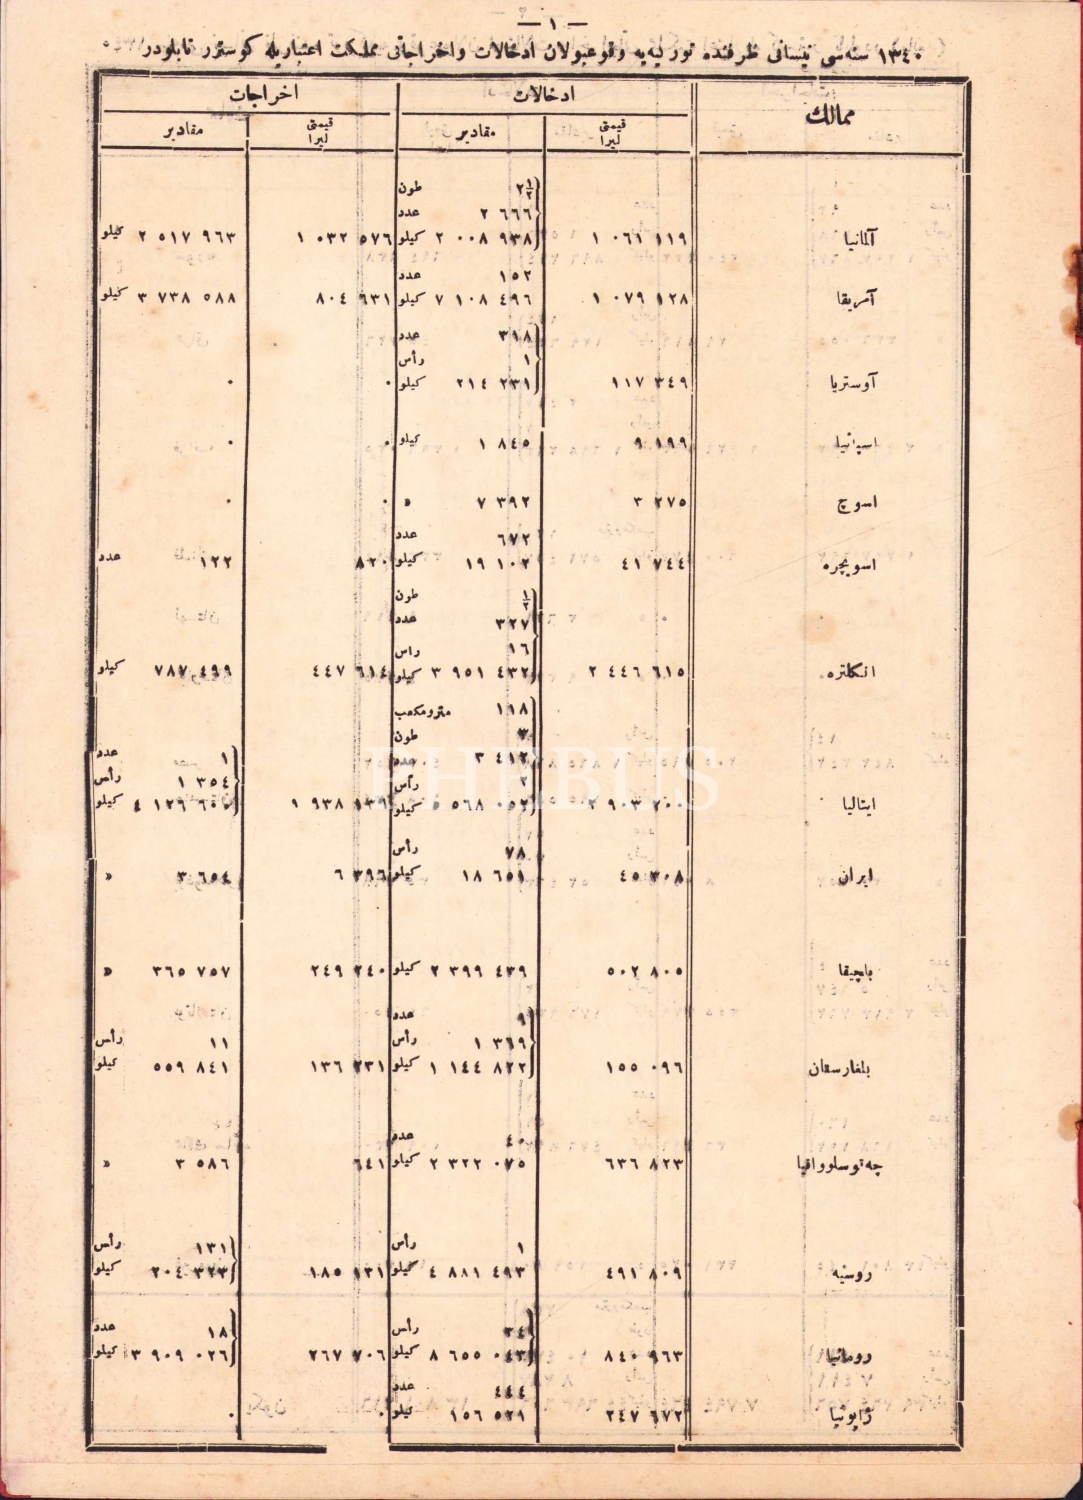 — ١ —
١٣٤٠ سنه‌سی نیسانی ظرفنده تورکیه‌یه وقوعبولان ادخالات واخراجاتی مملکت اعتباریله کوسترر تابلودر
ممالك ادخالات اخراجات
قیمتی لیرا مقادیر قیمتی لیرا مقادیر
٢ ١/٢ طون
٢ ٦٦٦ عدد
آلمانیا ١ ٠٦١ ١١٩ ٢ ٠٠٨ ٩٣٨ کیلو ١ ٠٣٢ ٥٧٦ ٢ ٥١٧ ٩٦٣ کیلو
١٥٢ عدد
آمریقا ١ ٠٧٩ ١٢٨ ٧ ١٠٨ ٤٩٦ کیلو ٨٠٤ ٦٣١ ٣ ٧٣٨ ٥٨٨ کیلو
٣١٨ عدد
١ رأس
آوستریا ١١٧ ٣٤٩ ٢١٤ ٢٣١ کیلو ٠ ٠
اسپانیا ٩ ١٩٩ ١ ٨٤٥ کیلو ٠ ٠
اسوج ٣ ٢٧٥ ٧ ٣٩٢ » ٠ ٠
٦٧٢ عدد
اسویچره ٤١ ٧٤٤ ١٩ ١٠٢ کیلو ٨٢٠ ١٢٢ عدد
١/٢ طون
٣٢٧ عدد
١٦ رأس
انکلتره ٢ ٤٤٦ ٦١٥ ٣ ٩٥١ ٤٣٢ کیلو ٤٤٧ ٦١٤ ٧٨٧ ٤٩٩ کیلو
١١٨ مترومکعب
٣ طون
٣ ٤١٢ عدد ١ عدد
٢ رأس ١ ٣٥٤ رأس
ایتالیا ٢ ٩٠٣ ٢٠٠ ٥ ٥٦٨ ٠٥٢ کیلو ١ ٩٣٨ ١٣٩ ٤ ١٢٩ ٦٠٥ کیلو
٧٨ رأس
ایران ٤٥ ٣٠٨ ١٨ ٦٥١ کیلو ٦ ٣٩٦ ٣ ٦٥٤ »
بلچیقا ٥٠٢ ٨٠٥ ٢ ٣٩٩ ٤٣٩ کیلو ٢٤٩ ٢٤٠ ٣٦٥ ٧٥٧ »
٩ عدد
١ ٣٦٩ رأس ١١ رأس
بلغارستان ١٥٥ ٠٩٦ ١ ١٤٤ ٨٢٢ کیلو ١٣٦ ٢٣١ ٥٥٩ ٨٤١ کیلو
٤٠ عدد
چه‌قوسلوواقیا ٦٣٦ ٨٢٣ ٢ ٣٢٢ ٠٧٥ کیلو ٦٤١ ٣ ٥٨٦ »
١ رأس ١٣١ رأس
روسیه ٤٩١ ٨٠٩ ٤ ٨٨١ ٤٩٣ کیلو ١٨٥ ١٣١ ٢٠٤ ٣٢٣ کیلو
٣٤ رأس ١٨ عدد
رومانیا ٨٤٠ ٩٦٣ ٨ ٦٥٥ ٠٤٣ کیلو ٢٦٧ ٧٠٦ ٣ ٩٠٩ ٠٢٦ کیلو
٤٤٤ عدد
ژاپونیا ٢٤٧ ٦٧٢ ١٥٦ ٥٢١ کیلو ٠ ٠
PHEBUS